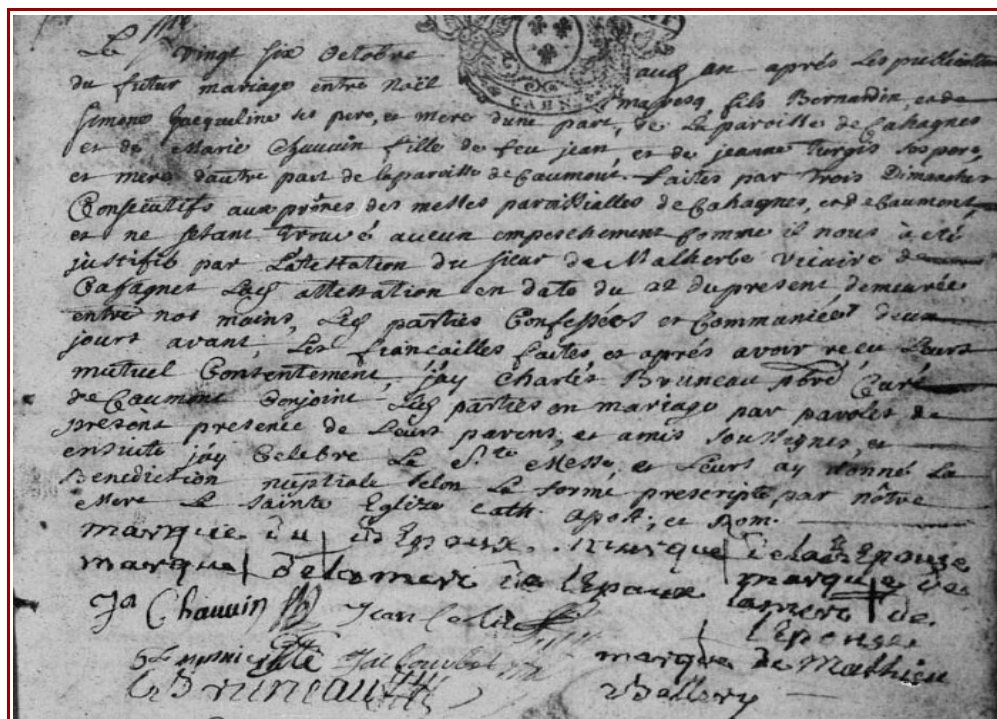 Le vingt six Octobre aud an aprés les publications
du futur mariage entre Noël fils Bernardin, et de
Simone Jacqueline ses pere, et mere d'une part, de la paroisse de Cahagnes
et de Marie Chauvin fille de feu jean, et de jeanne Turgis ses pere
et mere d'autre part de la paroisse de Caumont. faites par trois Dimanches
Consecutifs aux prônes des messes paroissialles de Cahagnes, et de Caumont,
et ne s'etant trouvé aucun empeschement comme il nous à eté
justifié par l'atestation du sieur de Malherbe vicaire de
Cahagnes attestation en date du 22 du present demeurée
entre nos mains, Les parties Confessées et Communiées deux
jours avant, Les fiançailles faites, et aprés avoir reçu leurs
mutuel Consentement, j'ay Charles Bruneau pbre Curé
de Caumont Conjoint les parties en mariage par paroles de
present presence de Leurs parens, et amis soussignes, et
ensuite j'ay Celebré La Ste Messe, et Leurs ay donné La
Benediction nuptiale selon La forme prescripte par nôtre
Mere La sainte Eglize Cath. apost; et Rom.
marque du Epoux. marque de la Epouze
marque de la mere de l'Epoux marque de
Ja Chauvin Jean la mere de
l'Epouse
marque de Mathieu
C Bruneau Vallery
CAHN